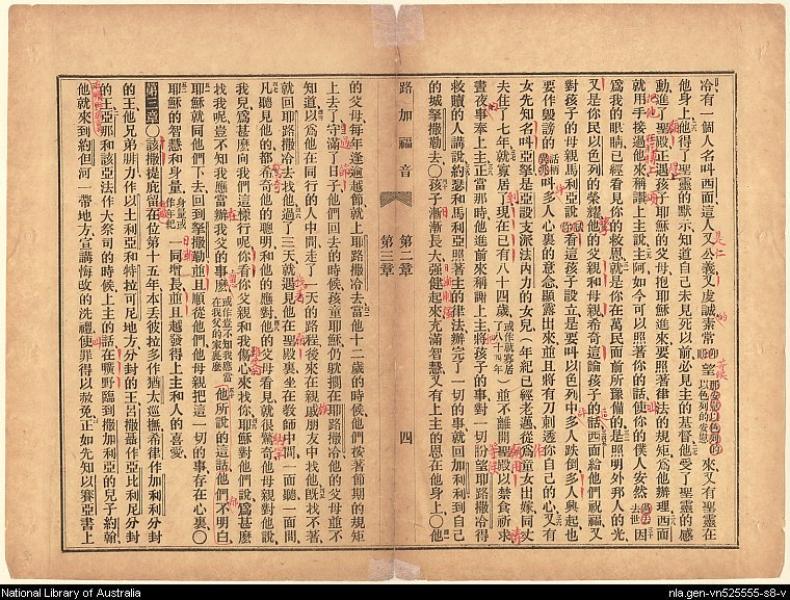 冷有一個人名叫西面這人又公義又虔誠素常仰望那安慰以色列的來又有聖靈在
他身上他得了聖靈的默示知道自己未見死以前必見主的基督他受了聖靈的感
動進了聖殿正遇孩子耶穌的父母抱耶穌進來要照著律法的規矩爲他辦理西面
就用手接過他來稱讚上主說主阿如今可以照著你的話使你的僕人安然去世因
爲我的眼睛已經看見你的救恩就是你在萬民面前所豫備的是照明外邦人的光
又是你民以色列的榮耀他的父親和母親希奇這論孩子的話西面給他們祝福又
對孩子的母親馬利亞說看這孩子設立是要叫以色列中多人跌倒多人興起也
要作毀謗的話柄叫多人心裏的意念顯露出來並且將有刀刺透你自己的心又有
女先知名叫亞拏是亞設支派法內力的女兒年紀已經老邁從爲童女出嫁同丈
夫住了七年就寡居了現在已有八十四歲或作就寡居了八十四年並不離開聖殿以禁食祈求
晝夜事奉上主正當那時他進前來稱謝上主將孩子的事對一切盼望耶路撒冷得
救贖的人講說約瑟和馬利亞照著主的律法辦完了一切的事就回加利利到自己
的城拏撒勒去〇孩子漸漸長大強健起來充滿智慧又有上主的恩在他身上〇他
路加福音
第二章
第三章
四
的父母每年逢逾越節就上耶路撒冷去當他十二歲的時候他們按著節期的規矩
上去了守滿了日子他們回去的時候孩童耶穌仍就擱在耶路撒冷他的父母並不
知道以爲他在同行的人中間走了一天的路程後來在親戚朋友中找他旣找不著
就回耶路撒冷去找他過了三天就遇見他在聖殿裏坐在敎師中間一面聽一面問
凡聽見他的都希奇他的聰明和他的應對他的父母看見就很驚奇他母親對他說
我兒爲甚麼向我們這樣行呢你看你父親和我傷心來找你耶穌對他們說爲甚麼
找我呢豈不知我應當辦我父的事麼或作豈不知我應當在我父的家裏麼他所說的這話他們不明白
耶穌就同他們下去回到拏撒勒並且順從他們他母親把這一切的事存在心裏〇
耶穌的智慧和身量身量或作年紀一同增長並且越發得上主和人的喜愛
第三章〇該撒提庇留在位第十五年本丟彼拉多作猶太巡撫希律作加利利分封
的王他兄弟腓力作以土利亞和特拉可尼地方分封的王呂撒聶作亞比利尼分封
的王亞那和該亞法作大祭司的時候上主的話在曠野臨到撒加利亞的兒子約翰
他就來到約但河一帶地方宣講悔改的洗禮使罪得以赦免正如先知以賽亞書上
National Library of Australia
nla.gen-vn525555-s8-v